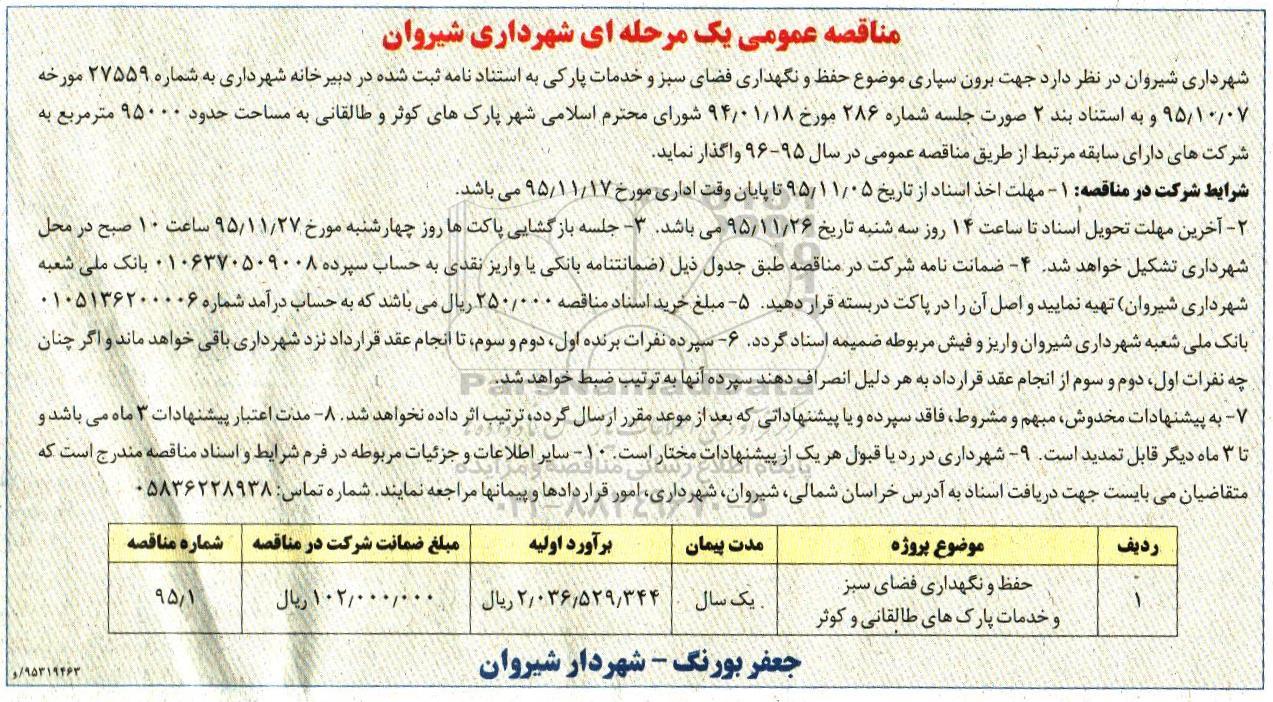 مناقصه عمومی یک مرحله ای شهرداری شیروان
شهرداری شیروان در نظر دارد جهت برون سپاری موضوع حفظ و نگهداری فضای سبز و خدمات پارکی به استناد نامه ثبت شده در دبیرخانه شهرداری به شماره ۲۷۵۵۹ مورخه
۹۵/۱۰/۰۷ و به استناد بند ۲ صورت جلسه شماره ۲۸۶ مورخ ۹۴/۰۱/۱۸ شورای محترم اسلامی شهر پارک های کوثر و طالقانی به مساحت حدود ۹۵۰۰۰ مترمربع به
شرکت های دارای سابقه مرتبط از طریق مناقصه عمومی در سال ۹۵-۹۶ واگذار نماید.
شرایط شرکت در مناقصه: ۱- مهلت اخذ اسناد از تاریخ ۹۵/۱۱/۰۵ تا پایان وقت اداری مورخ ۹۵/۱۱/۱۷ می باشد.
۲- آخرین مهلت تحویل اسناد تا ساعت ۱۴ روز سه شنبه تاریخ ۹۵/۱۱/۲۶ می باشد. ۳- جلسه بازگشایی پاکت ها روز چهارشنبه مورخ ۹۵/۱۱/۲۷ ساعت ۱۰ صبح در محل
شهرداری تشکیل خواهد شد. ۴- ضمانت نامه شرکت در مناقصه طبق جدول ذیل (ضمانتنامه بانکی یا واریز نقدی به حساب سپرده ۰۱۰۶۳۷۰۵۰۹۰۰۸ بانک ملی شعبه
شهرداری شیروان) تهیه نمایید و اصل آن را در پاکت دربسته قرار دهید. ۵- مبلغ خرید اسناد مناقصه ۲۵۰/۰۰۰ ریال می باشد که به حساب درآمد شماره ۰۱۰۵۱۳۶۲۰۰۰۰۶
بانک ملی شعبه شهرداری شیروان واریز و فیش مربوطه ضمیمه اسناد گردد. ۶- سپرده نفرات برنده اول، دوم و سوم، تا انجام عقد قرارداد نزد شهرداری باقی خواهد ماند و اگر چنان
چه نفرات اول، دوم و سوم از انجام عقد قرارداد به هر دلیل انصراف دهند سپرده آنها به ترتیب ضبط خواهد شد.
۷- به پیشنهادات مخدوش، مبهم و مشروط، فاقد سپرده و یا پیشنهاداتی که بعد از موعد مقرر ارسال گردد، ترتیب اثر داده نخواهد شد. ۸- مدت اعتبار پیشنهادات ۳ ماه می باشد و
تا ۳ ماه دیگر قابل تمدید است. ۹- شهرداری در رد یا قبول هر یک از پیشنهادات مختار است. ۱۰- سایر اطلاعات و جزئیات مربوطه در فرم شرایط و اسناد مناقصه مندرج است که
متقاضیان می بایست جهت دریافت اسناد به آدرس خراسان شمالی، شیروان، شهرداری، امور قراردادها و پیمانها مراجعه نمایند. شماره تماس: ۰۵۸۳۶۲۲۸۹۳۸
ردیف موضوع پروژه مدت پیمان برآورد اولیه مبلغ ضمانت شرکت در مناقصه شماره مناقصه
۱ حفظ و نگهداری فضای سبز و خدمات پارک های طالقانی و کوثر یک سال ۲/۰۳۶/۵۲۹/۳۴۴ ریال ۱۰۲/۰۰۰/۰۰۰ ریال ۹۵/۱
جعفر بورنگ - شهردار شیروان
۹۵۳۱۹۴۶۳/و
ParsNamadData
پایگاه اطلاع رسانی مناقصه و مزایده
۰۲۱-۸۸۳۴۹۶۷۰-۵